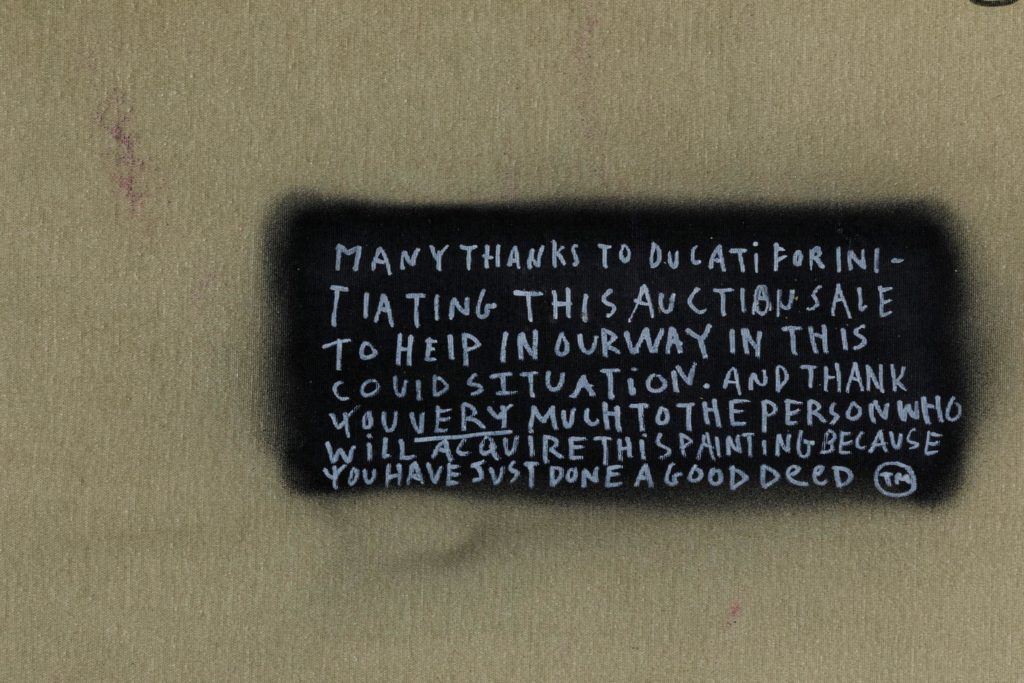 MANY THANKS TO DUCATi FOR INI-
TIATING THIS AUCTION SALE
TO HElP IN OUR WAY IN THIS
COVID SITUATiON. AND THANK
YOU VERY MUCH TO THE PERSON WHO
WiLL ACQUIRE THiS PAINTING BECAUSE
YOU HAVE JUST DONE A GOOD DeeD TM